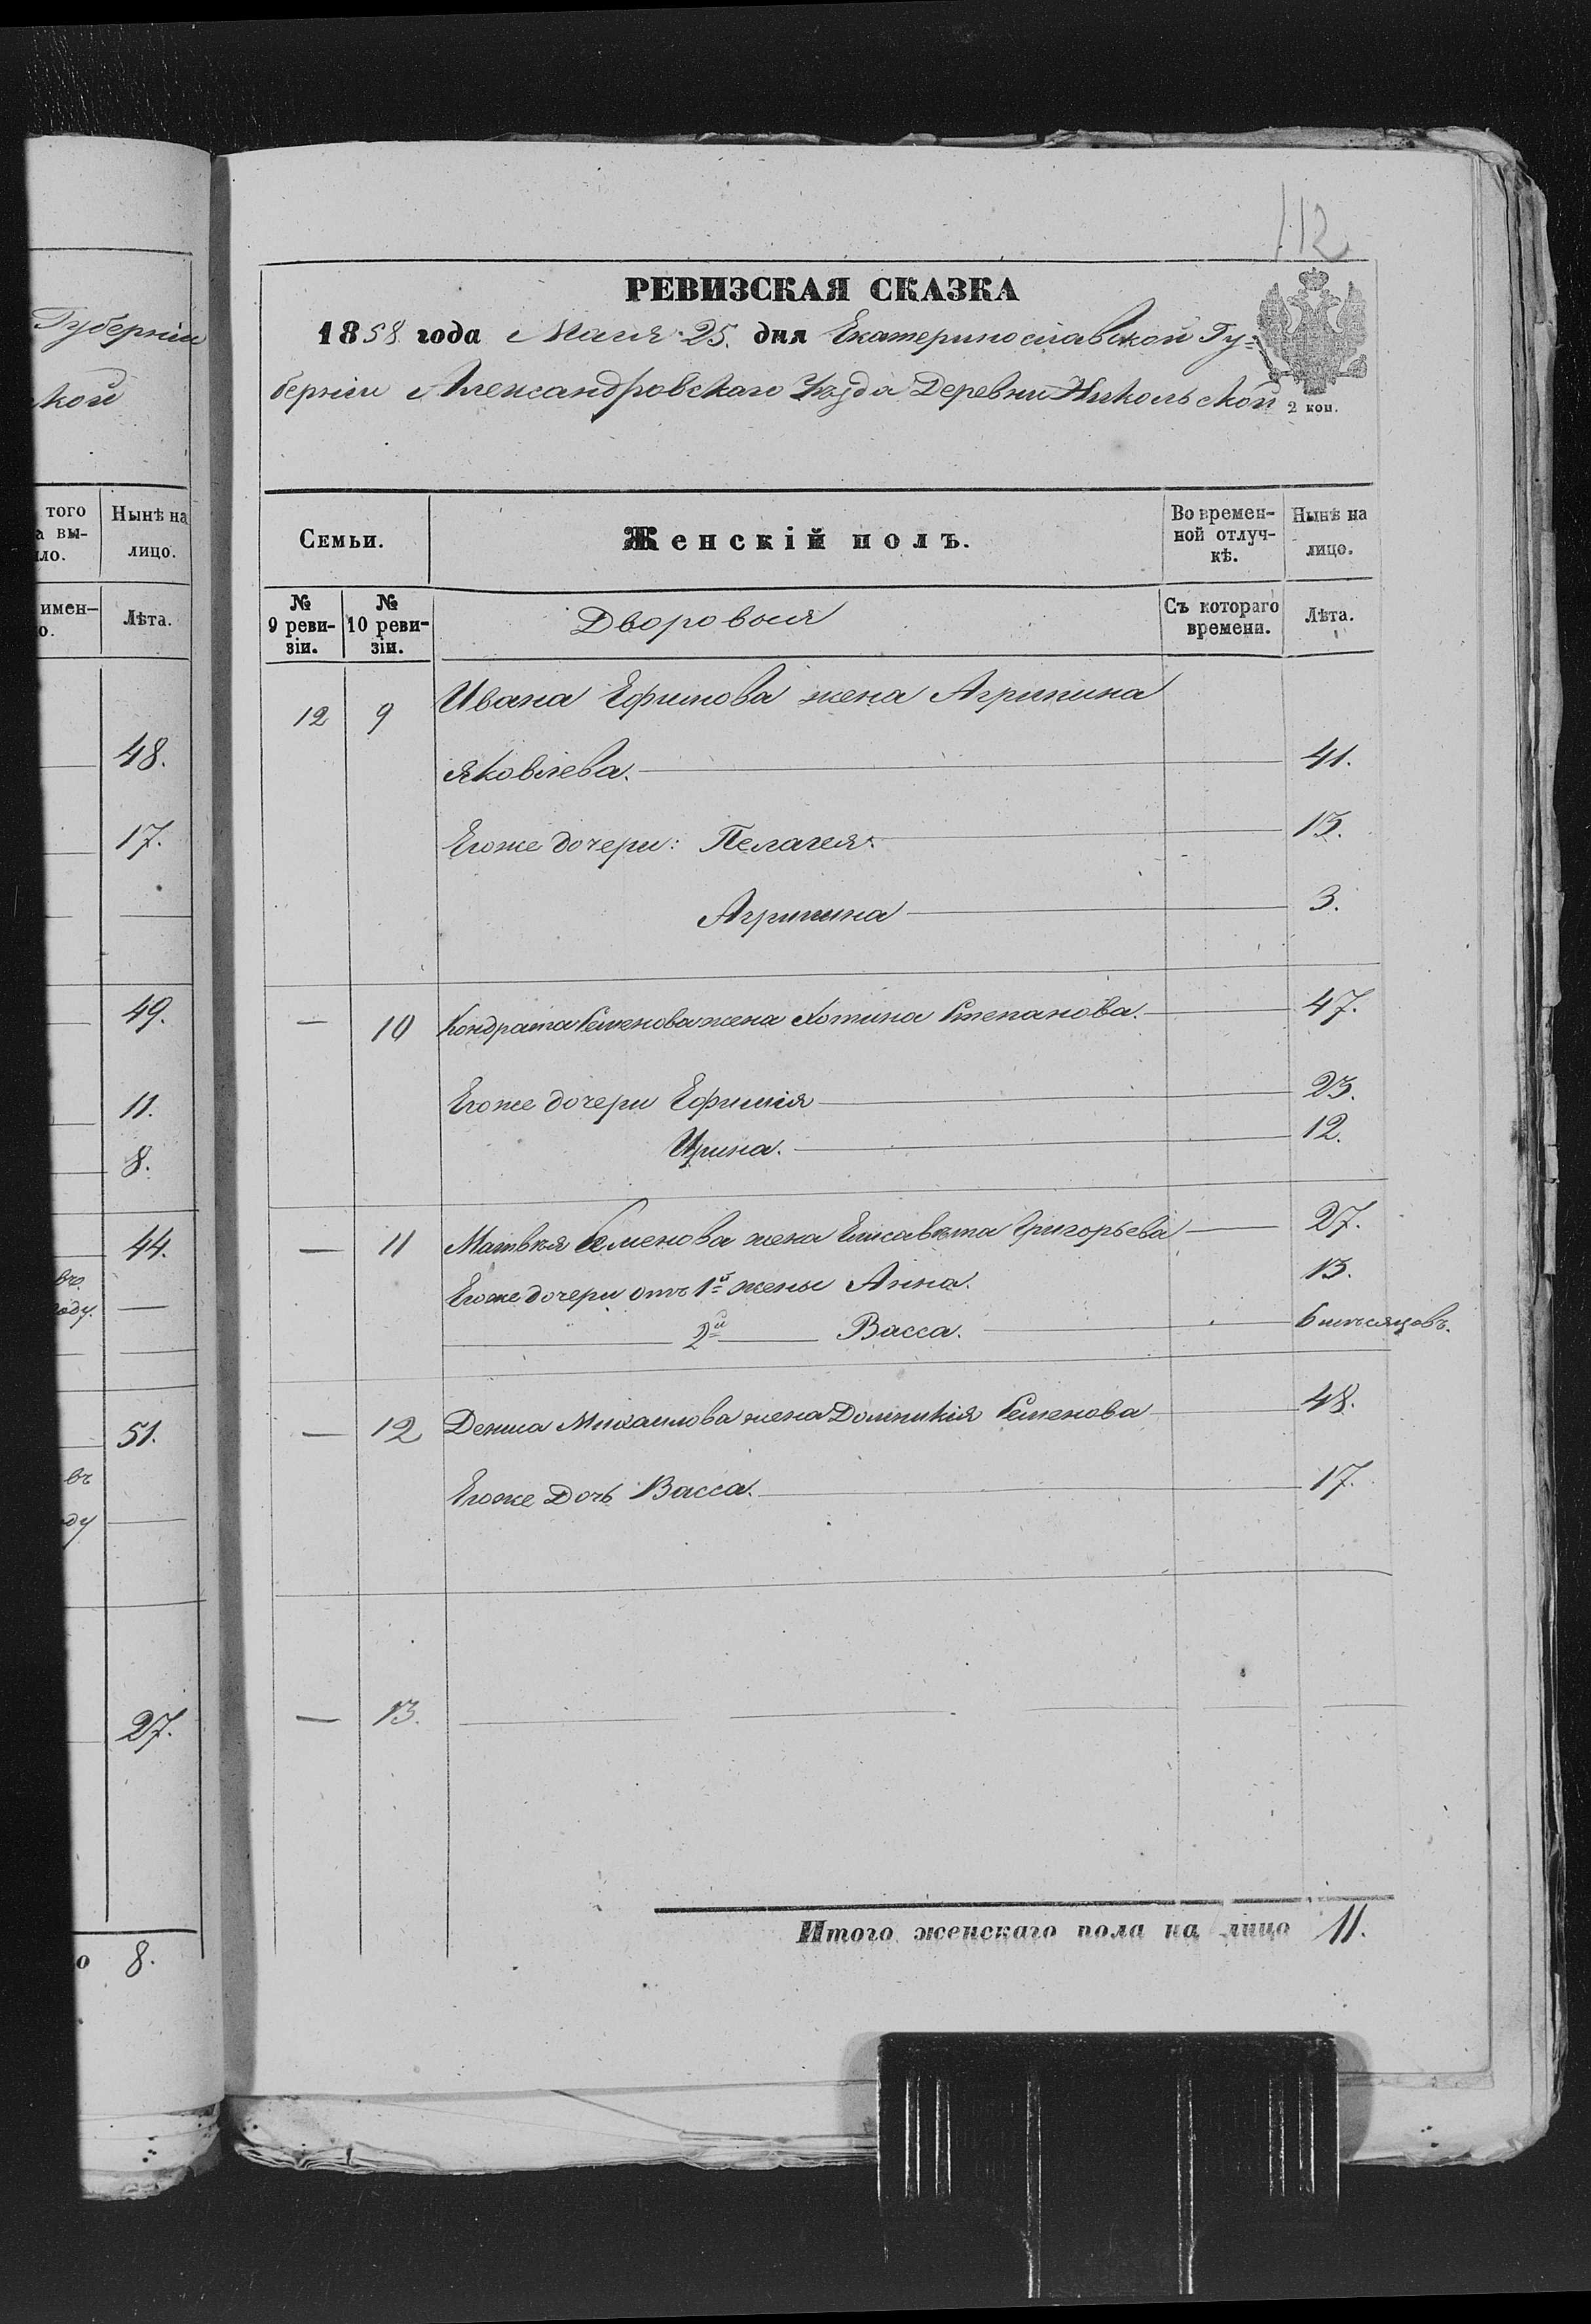 Губерніи
кой
того
а вы-
ло.
Нынѣ на
лицо.
имен-
о.
Лѣта.
48.
17.
49.
11.
8.
44.
въ
году.
51.
въ
ду
27.
о 8.
112
РЕВИЗСКАЯ СКАЗКА
1858 года Маія 25. дня Екатеринославской Гу=
берніи Александровскаго Уѣзда Деревни Никольской
2 коп.
Семьи.
Женскій полъ.
Во времен-
ной отлуч-
кѣ.
Нынѣ на
лицо.
№
9 реви-
зіи.
№
10 реви-
зіи.
Дворовыя
Съ котораго
времени.
Лѣта.
12 9 Ивана Ефимова жена Агрипина
Яковлева. 41.
Егоже дочери: Пелагея. 13.
Агрипина 3.
— 10 Кондрата Семенова жена Хотина Степанова. 47.
Егоже дочери Ефимія 23.
Ирина. 12.
— 11 Матвѣя Семенова жена Елисавѣта Григорьева 27.
Егоже дочери отъ 1й жены Анна. 13.
2й Васса. 6 мѣсяцовъ.
— 12 Дениса Михаилова жена Домникія Семенова 48.
Егоже Дочь Васса. 17.
— 13.
Итого женскаго пола на лицо 11.